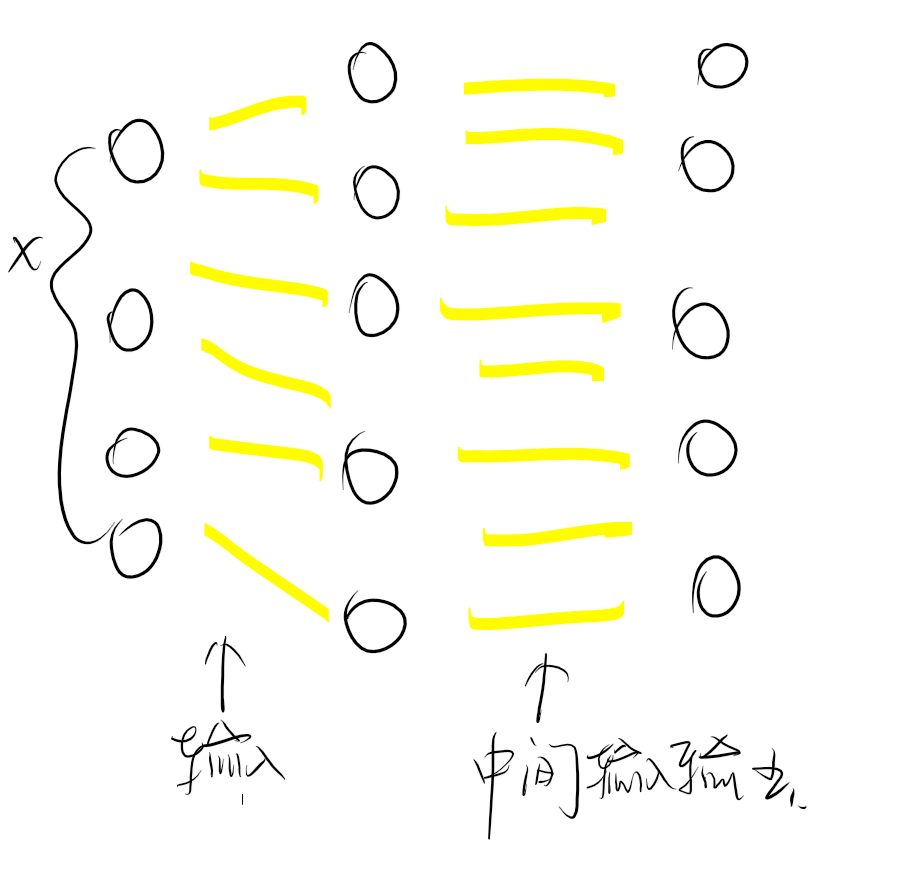 X
输入
中间输入输出